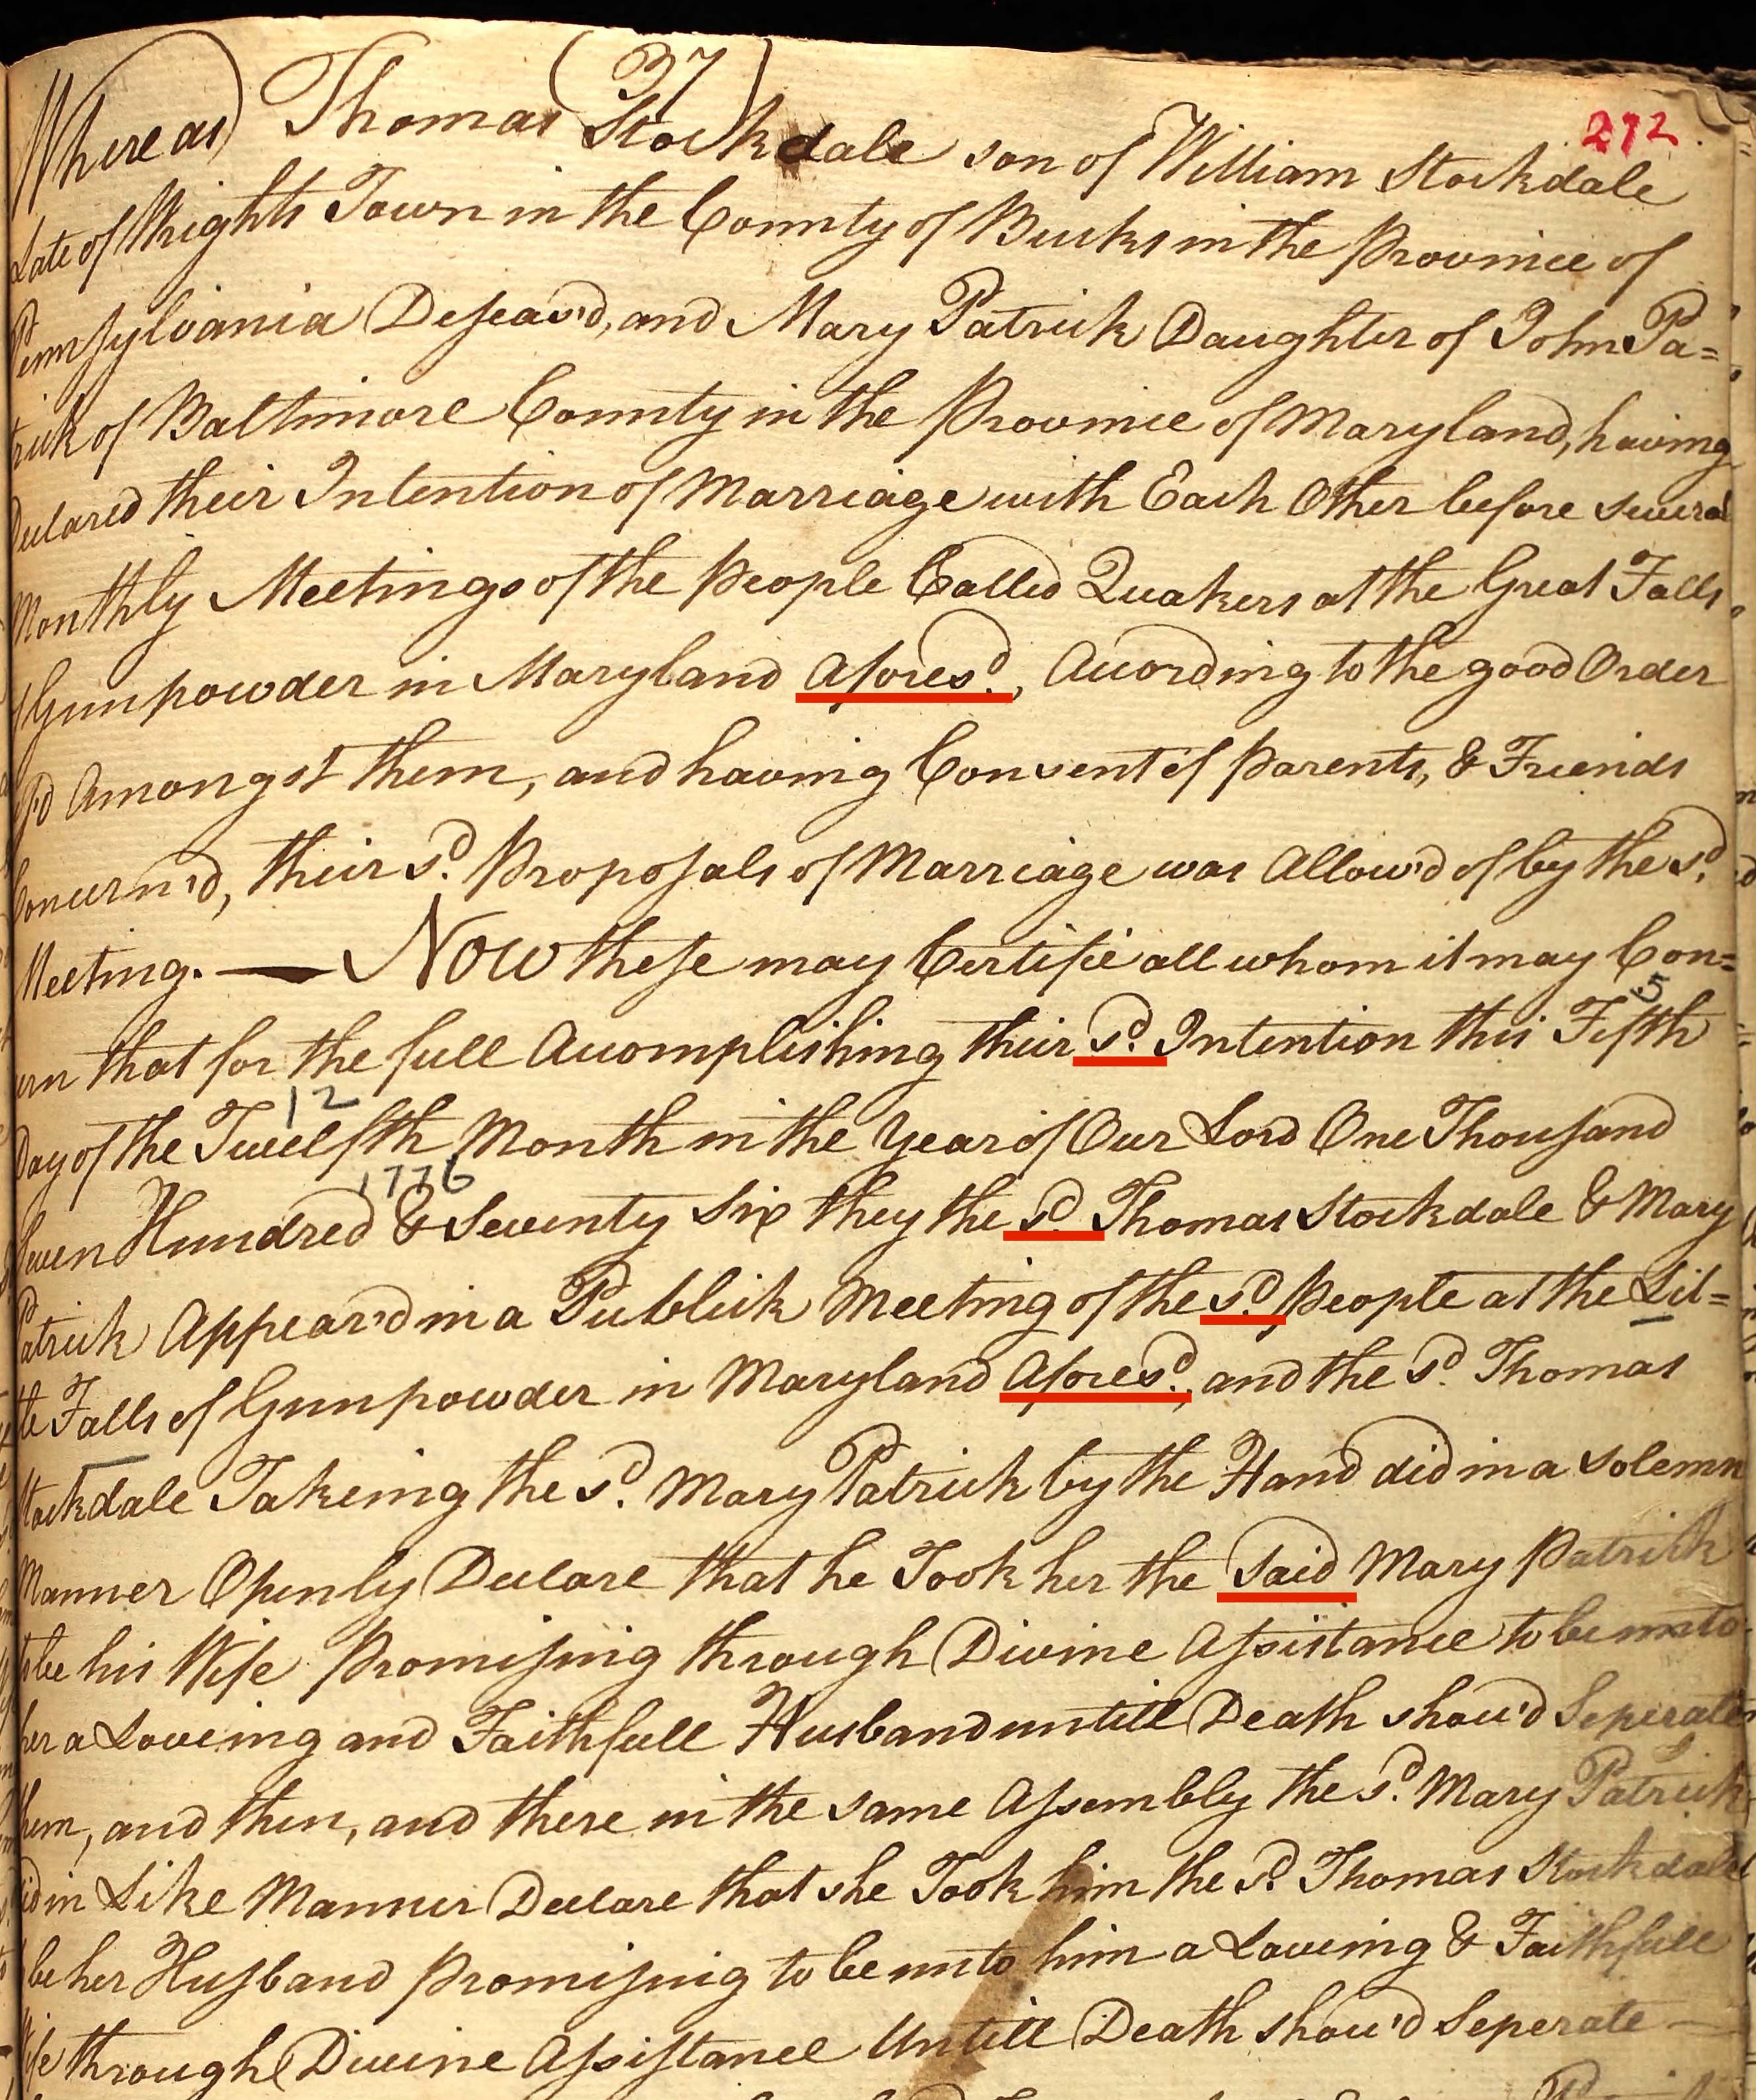 (37)
272
Whereas Thomas Stockdale son of William Stockdale
Late of Wrights Town in the County of Bucks in the Province of
Pennsylvania Deseas'd, and Mary Patrick Daughter of John Pa=
trick of Baltimore County in the Province of Maryland, having
Declared their Intention of Marriage with Each Other before several
Monthly Meetings of the People Called Quakers at the Great Falls
of Gunpowder in Maryland Afores.d, Acording to the good Order
Amongst them, and having Consent of Parents, & Friends
Concern'd, their s.d Proposals of Marriage was Allow'd of by the s.d
Meeting. — Now these may Certifie all whom it may Con=
5
ern that for the full Acomplishing their s.d Intention this Fifth
12
Day of the Twelfth Month in the Year of Our Lord One Thousand
1776
Seven Hundred & Seventy Six they the s.d Thomas Stockdale & Mary
Patrick Appear'd in a Publick Meeting of the s.d People at the Lit=
tle Falls of Gunpowder in Maryland Afores.d, and the s.d Thomas
Stockdale Takeing the s.d Mary Patrick by the Hand did in a solemn
Manner Openly Declare that he Took her the Said Mary Patrick
be his Wife Promising through Divine Assistance to be unto
her a Loveing and Faithfull Husband untill Death shou'd Seperate
them, and then, and there in the same Assembly the s.d Mary Patrick
did in Like Manner Declare that she Took him the s.d Thomas Stockdale
be her Husband Promising to be unto him a Loveing & Faithfull
Wife through Divine Assistance Untill Death shou'd Seperate —